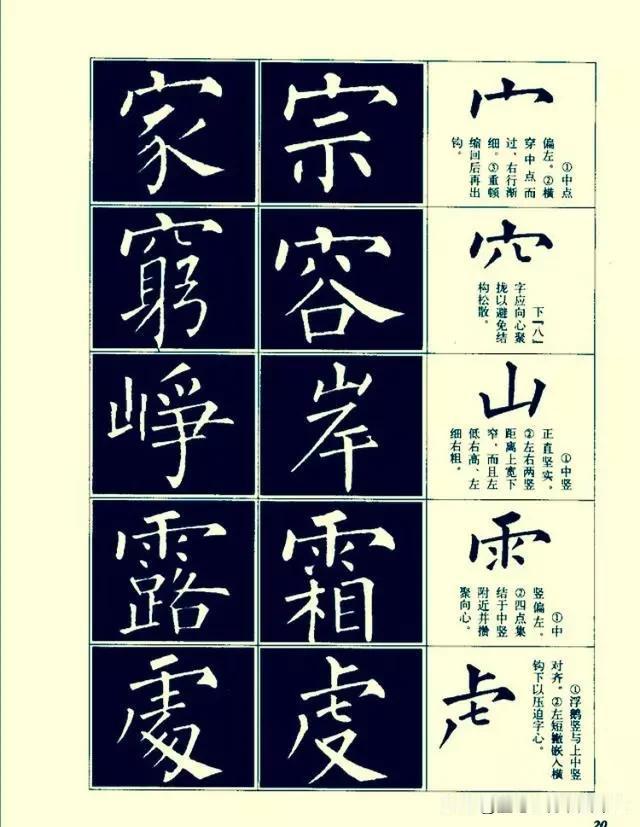 宀
①中点
偏左。②横
穿中点而
过、右行渐
细。③重顿
缩回后再出
钩。
宗
家
穴
下『八』
字应向心聚
拢以避免结
构松散。
容
窮
山
①中竖
正直坚实。
②左右两竖
距离上宽下
窄，而且左
低右高、左
细右粗。
岸
崢
雨
①中
竖偏左。
②四点集
结于中竖
附近并攒
聚向心。
霜
露
虍
①浮鹅竖与上中竖
对齐。②左短撇嵌入横
钩下以压迫字心。
虔
20